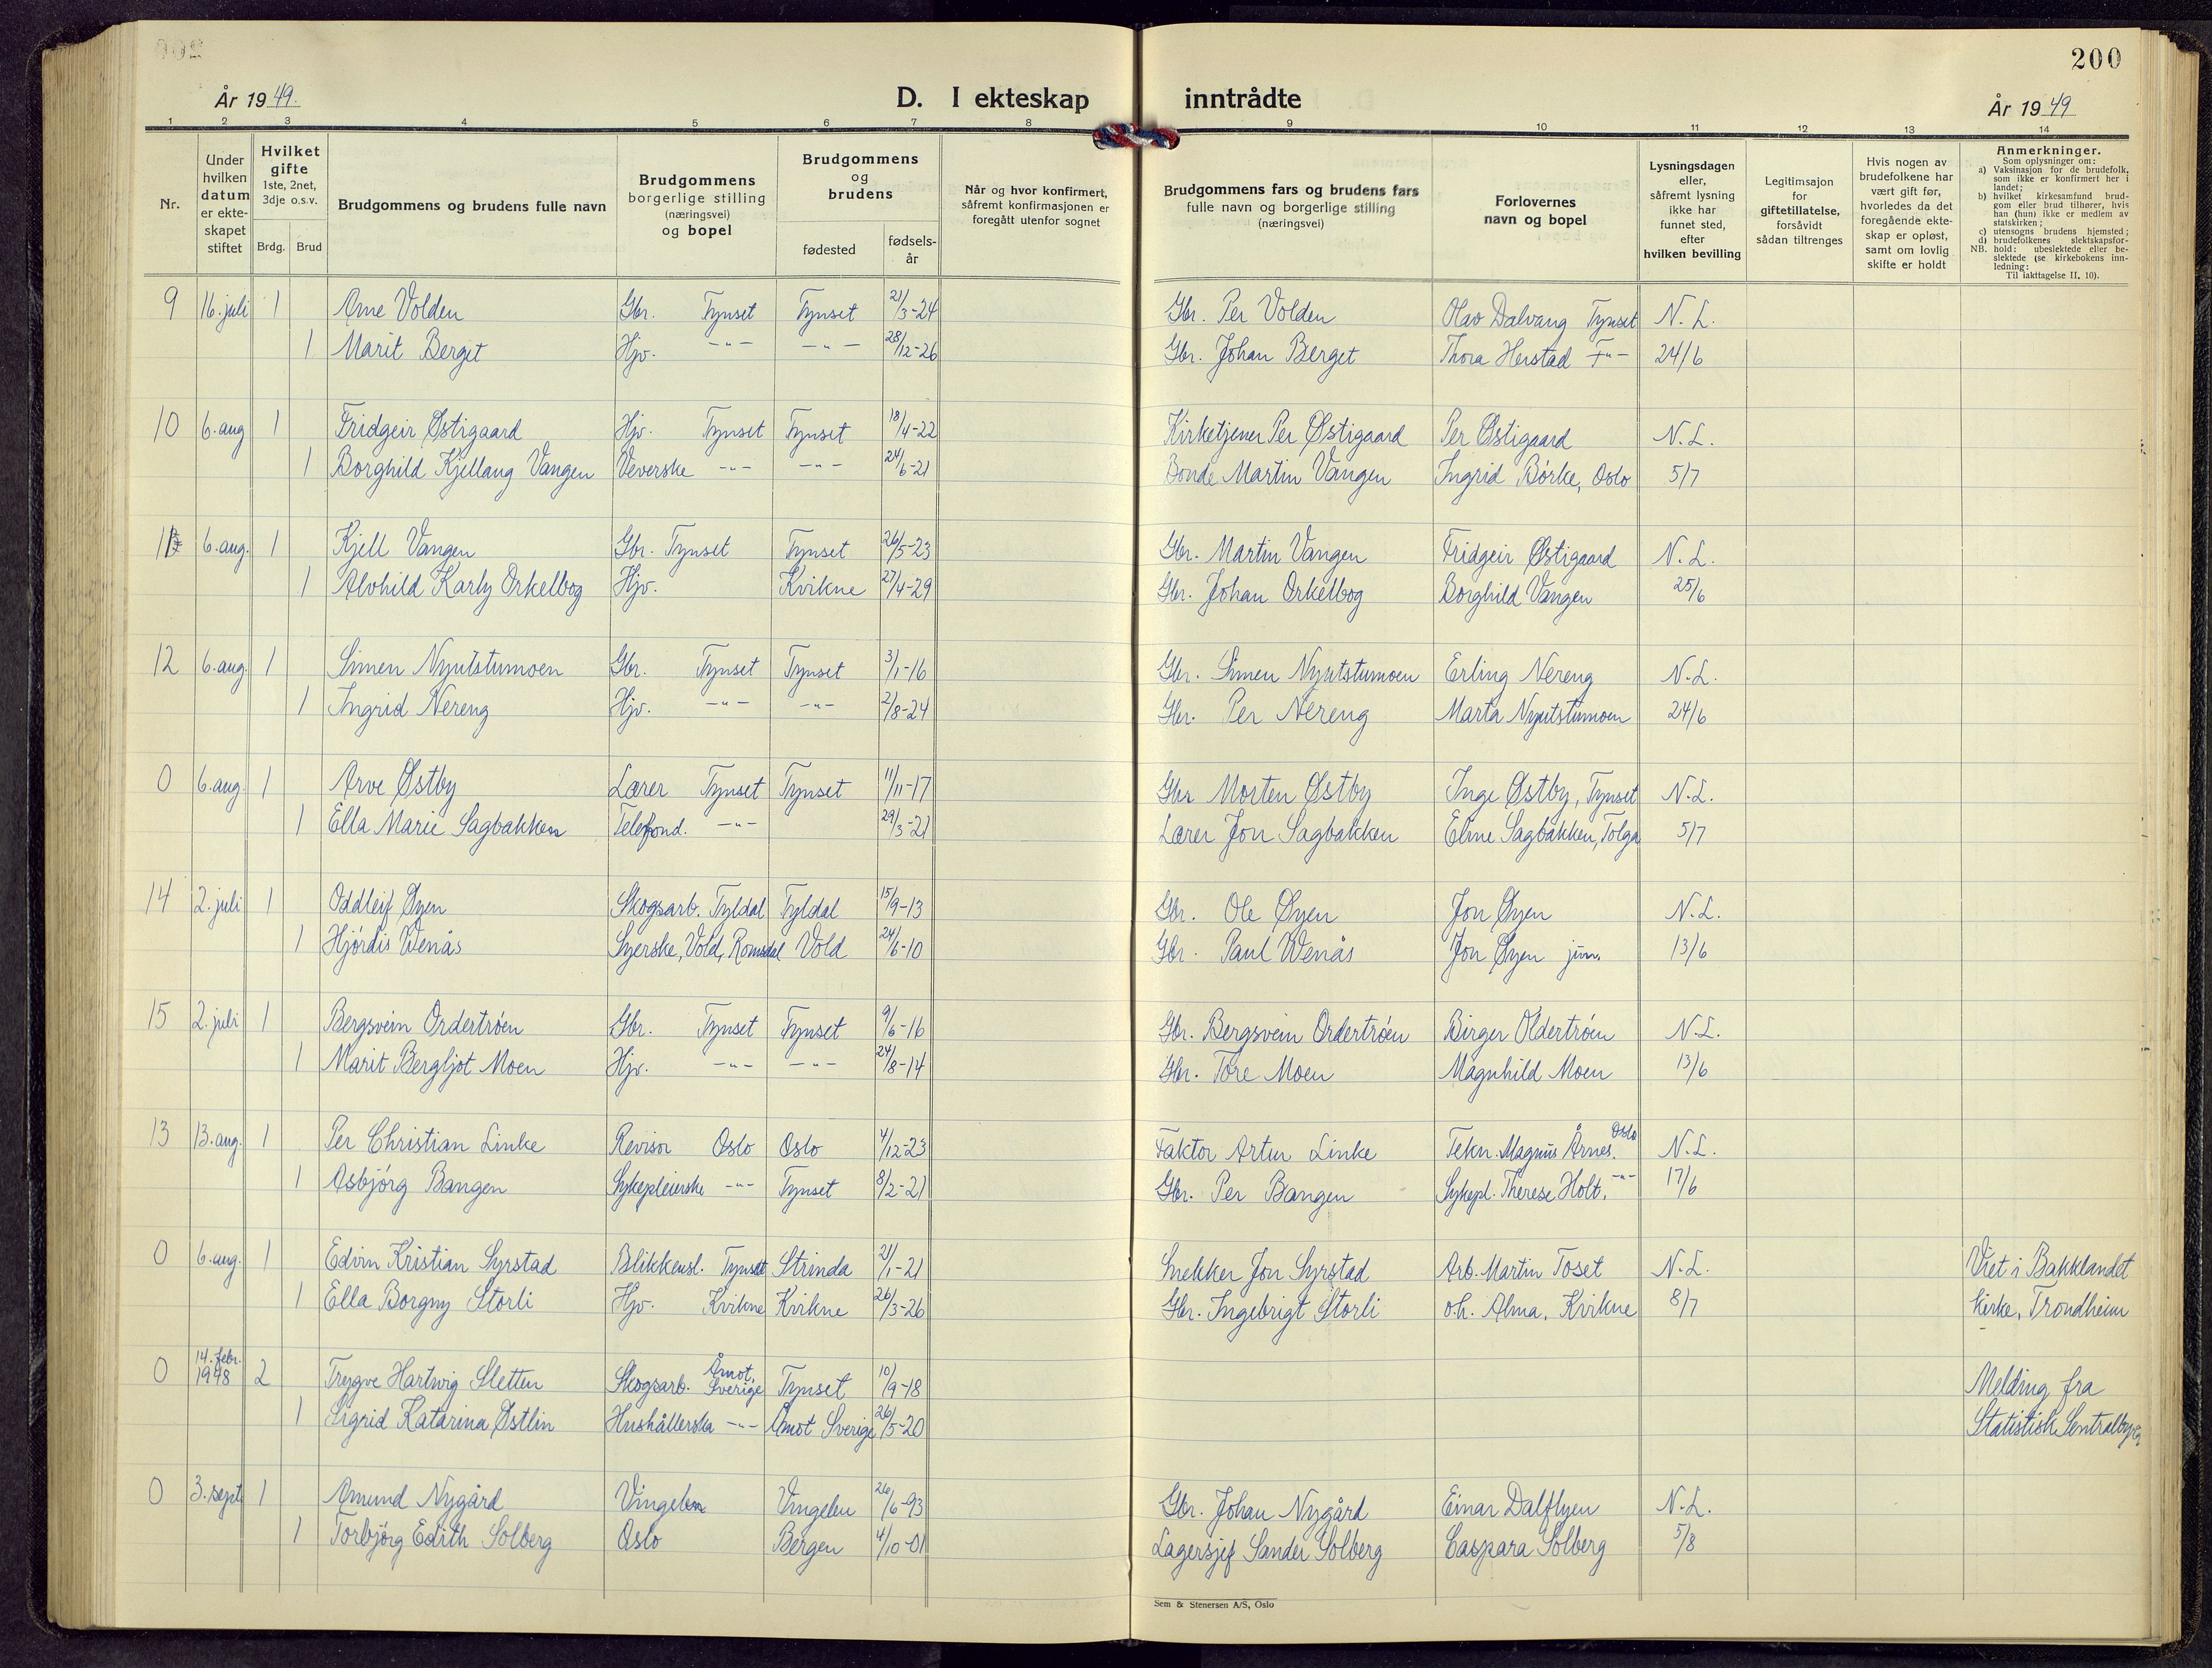 200
År 1949.
D. I ekteskap inntrådte
År 1949
1 2 3 4 5 6 7 8 9 10 11 12 13 14
Nr.
Under hvilken datum er ekte-skapet stiftet
Hvilket gifte 1ste, 2net, 3dje o.s.v.
Brdg. Brud
Brudgommens og brudens fulle navn
Brudgommens borgerlige stilling (næringsvei) og bopel
Brudgommens og brudens
fødested
fødsels-år
Når og hvor konfirmert, såfremt konfirmasjonen er foregått utenfor sognet
Brudgommens fars og brudens fars fulle navn og borgerlige stilling (næringsvei)
Forlovernes navn og bopel
Lysningsdagen eller, såfremt lysning ikke har funnet sted, efter hvilken bevilling
Legitimsajon for giftetillatelse, forsåvidt sådan tiltrenges
Hvis nogen av brudefolkene har vært gift før, hvorledes da det foregående ekte-skap er opløst, samt om lovlig skifte er holdt
Anmerkninger.
Som oplysninger om:
a) Vaksinasjon for de brudefolk, som ikke er konfirmert her i landet;
b) hvilket kirkesamfund brud-gom eller brud tilhører, hvis han (hun) ikke er medlem av statskirken;
c) utensogns brudens hjemsted;
d) brudefolkenes slektskapsfor-hold: ubeslektede eller be-slektede (se kirkebokens inn-ledning:
NB. Til iakttagelse II, 10).
9 16. juli 1 Arne Volden Gbr. Tynset Tynset 21/3-24 Gbr. Per Volden Olav Dalvang Tynset N. L.
1 Marit Berget Hjv. -"- -"- 28/12-26 Gbr. Johan Berget Thora Herstad -"- 24/6
10 6. aug 1 Fridgeir Østigaard Hjv. Tynset Tynset 18/4-22 Kirketjener Per Østigaard Per Østigaard N. L.
1 Borghild Kjellaug Vangen Veverske -"- -"- 24/6-21 Bonde Martin Vangen Ingrid Børke, Oslo 5/7
11 6. aug. 1 Kjell Vangen Gbr. Tynset Tynset 26/5-23 Gbr. Martin Vangen Fridgeir Østigaard N. L.
1 Alvhild Karly Orkelbog Hjv. Kvikne 27/4-29 Gbr. Johan Orkelbog Borghild Vangen 25/6
12 6. aug. 1 Simen Nyutstumoen Gbr. Tynset Tynset 3/1-16 Gbr. Simen Nyutstumoen Erling Nereng N.L.
1 Ingrid Nereng Hjv. -"- -"- 2/8-24 Gbr. Per Nereng Marta Nyutstumoen 24/6
0 6. aug. 1 Arve Østby Lærer Tynset Tynset 11/11-17 Gbr Morten Østby Inge Østby, Tynset N.L.
1 Ella Marie Sagbakken Telefond. -"- 29/3-21 Lærer Jon Sagbakken Eline Sagbakken, Tolga 5/7
14 2. juli 1 Oddleif Øyen Skogsarb. Tyldal Tyldal 15/9-13 Gbr. Ole Øyen Jon Øyen N.L.
1 Hjørdis Wenås Syerske, Vold, Romsdal Vold 24/6-10 Gbr. Paul Wenås Jon Øyen jun. 13/6
15 2. juli 1 Bergsvein Ordertrøen Gbr. Tynset Tynset 9/6-16 Gbr. Bergsvein Ordertrøen Birger Oldertrøen N.L.
1 Marit Bergljot Moen Hjv. -"- -"- 24/8-14 Gbr. Tore Moen Magnhild Moen 13/6
13 13. aug. 1 Per Christian Linke Revisor Oslo Oslo 4/12-23 Faktor Artur Linke Tekn. Magnus Årnes. Oslo N.L.
1 Asbjørg Bangen Sykepleierske -"- Tynset 8/2-21 Gbr. Per Bangen Sykepl. Therese Holt. -"- 17/6
0 6. aug. 1 Edvin Kristian Syrstad Blikkensl. Tynset Strinda 21/1-21 Snekker Jon Syrstad Arb. Martin Toset N.L. Viet i Bakklandet
1 Ella Borgny Storli Hjv. Kvikne Kvikne 26/3-26 Gbr. Ingebrigt Storli o.h. Alma, Kvikne 8/7 kirke, Trondheim
0 14. febr. 1948 2 Trygve Hartwig Sletten Skogsarb. Åmot, Sverige Tynset 10/9-18 Melding fra
1 Sigrid Katarina Østlin Hushållerska -"- Åmot Sverige 26/5-20 Statistisk Sentralbyrå
0 3. sept. 1 Amund Nygård Vingelen Vingelen 26/6-93 Gbr. Johan Nygård Einar Dalflyen N.L.
1 Torbjørg Edith Solberg Oslo Bergen 4/10-01 Lagersjef Sander Solberg Caspara Solberg 5/8
Sem & Stenersen A/S, Oslo